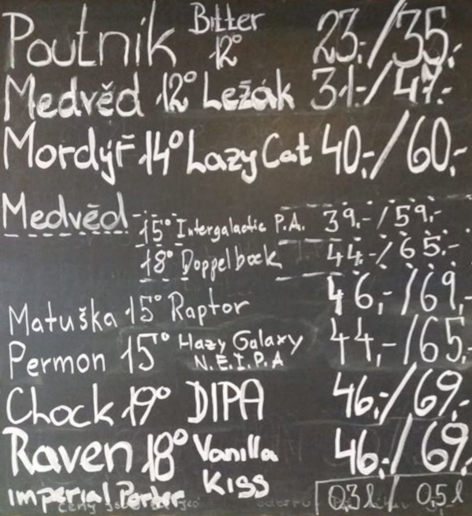 Poutník Bitter 12° 23,-/35,-
Medvěd 12° Ležák 31,-/47,-
Mordýř 14° Lazy Cat 40,-/60,-
Medvěd 15° Intergalactic P.A. 39,-/59,-
18° Doppelbock 44,-/65,-
Matuška 15° Raptor 46,-/69,
Permon 15° Hazy Galaxy N.E.I.P.A 44,-/65,
Chock 19° DIPA 46,-/69,-
Raven 18° Vanilla 46,-/69,
Imperial Porter Kiss 0,3 l / 0,5 l